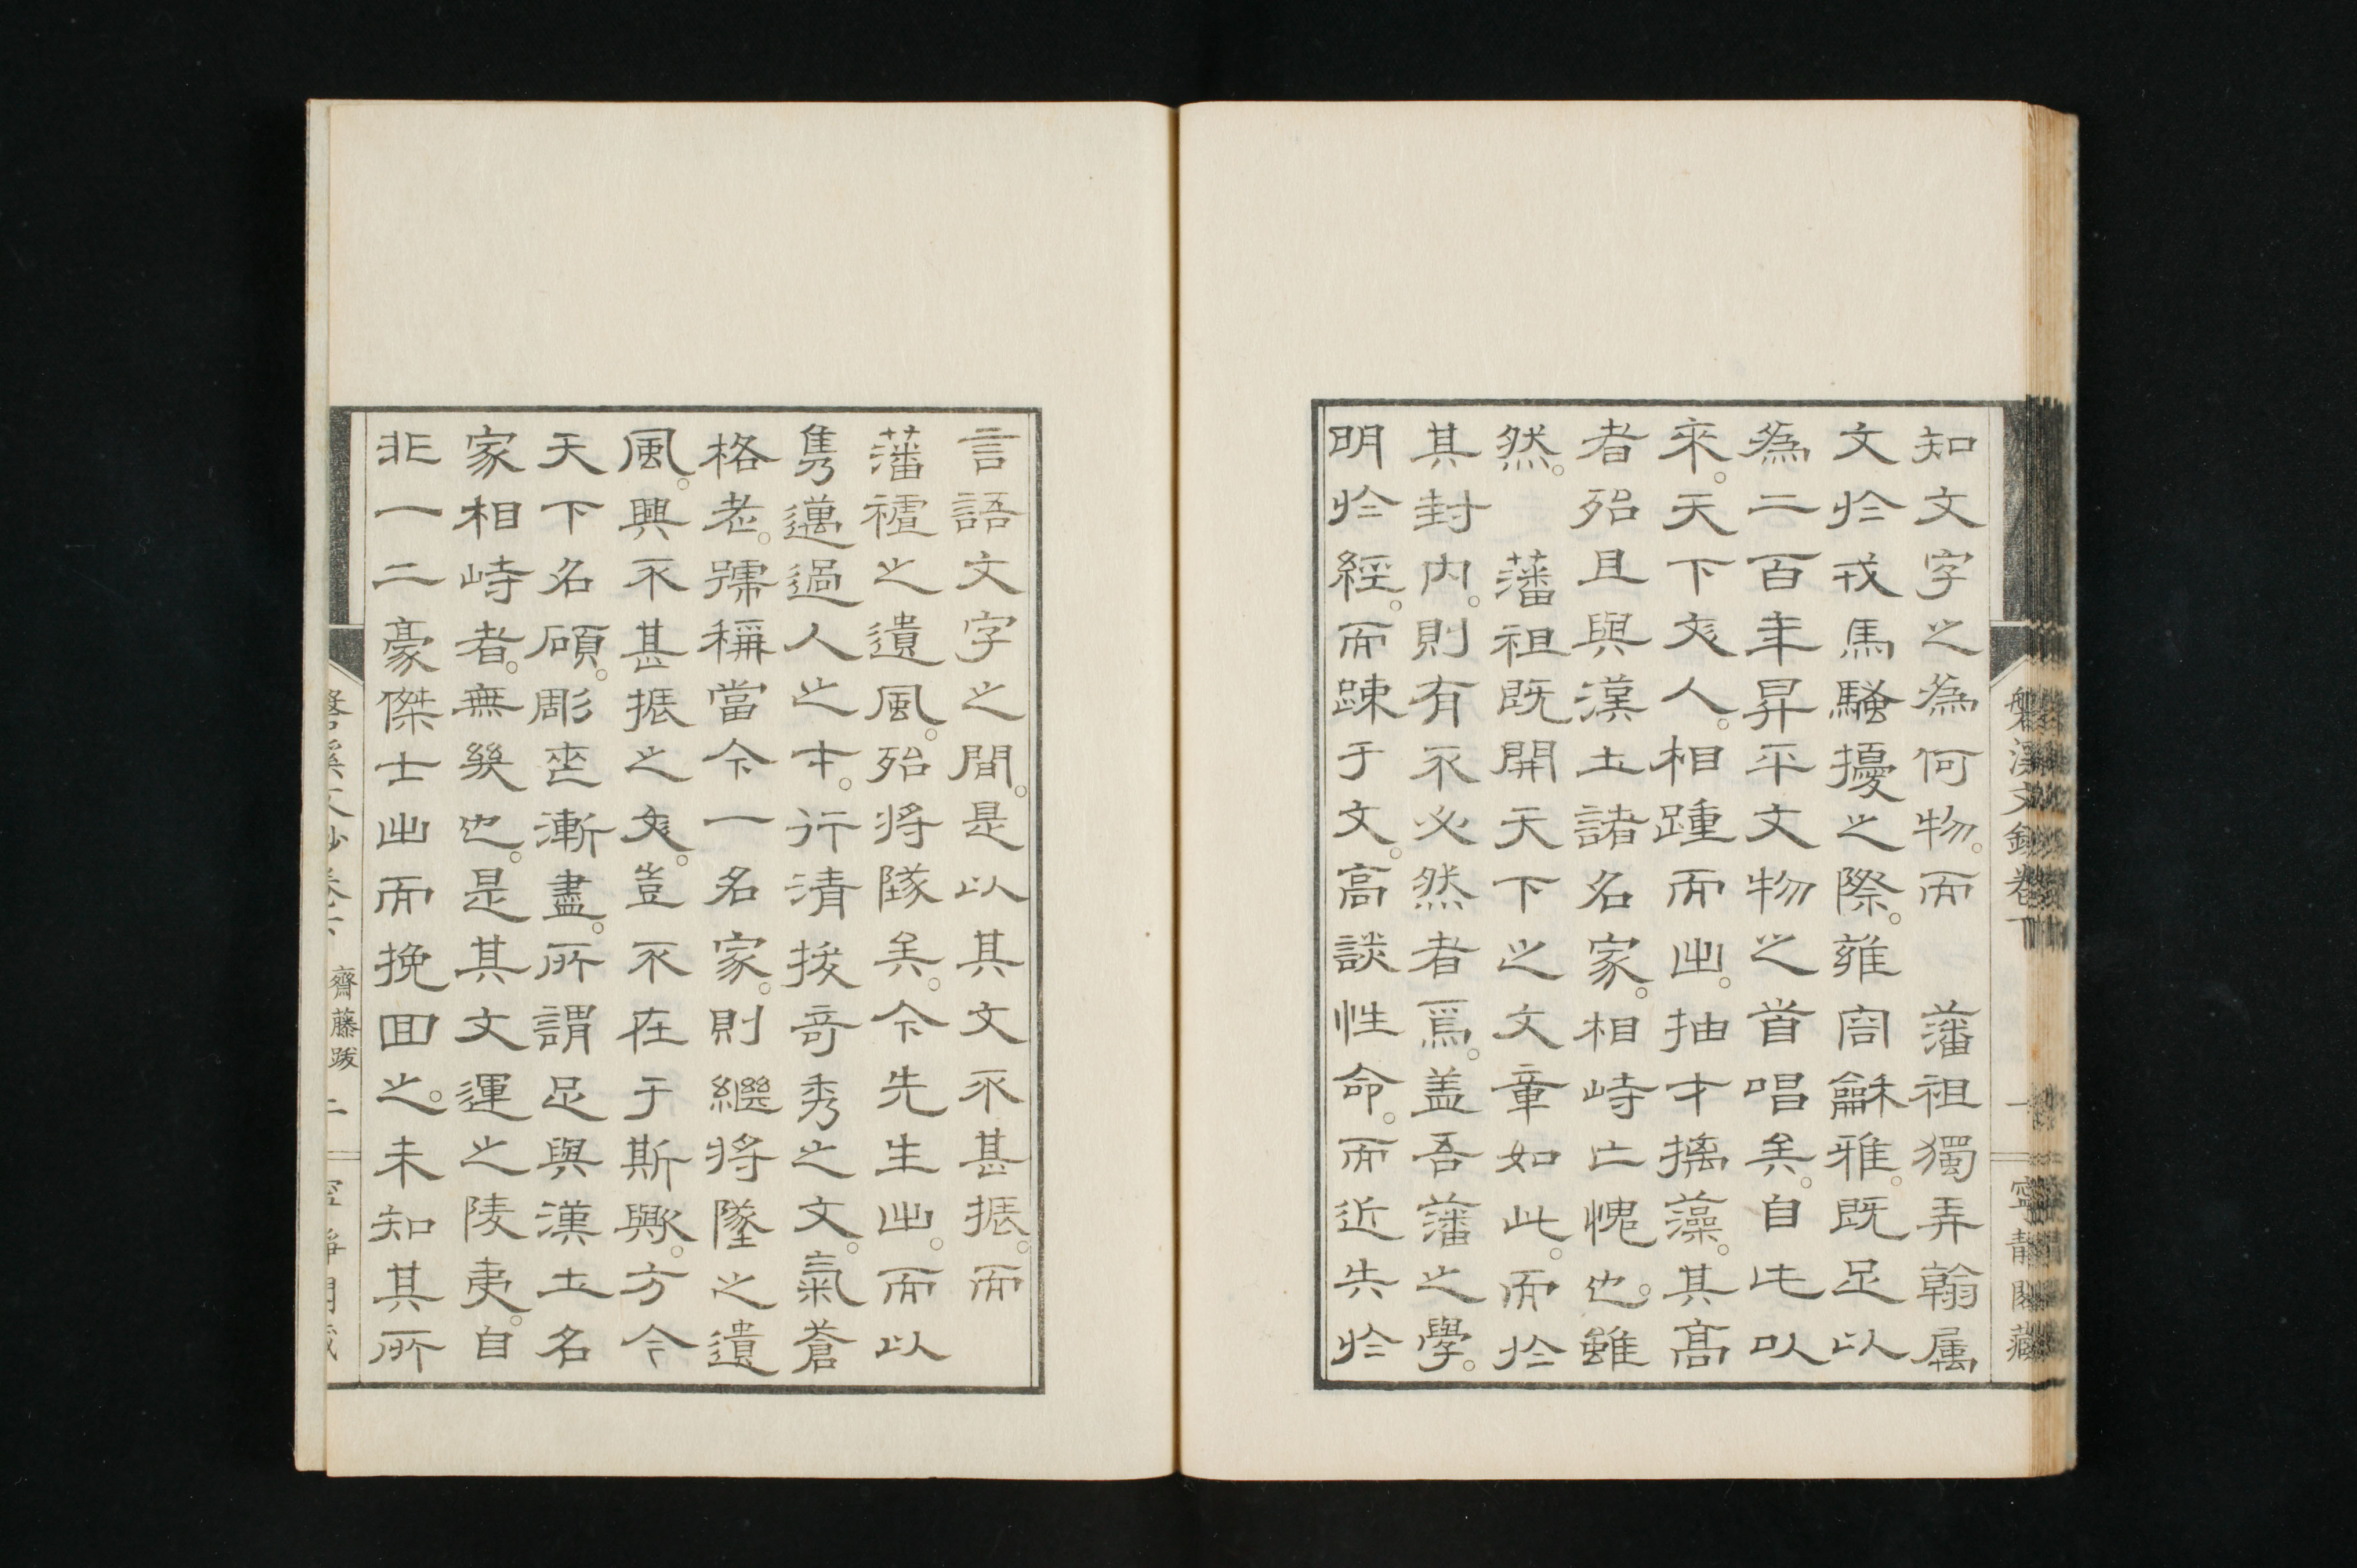 知文字之為何物。而　藩祖獨弄翰属
文於戎馬騷擾之際。雍容龢雅。既足以
為二百年昇平文物之首唱矣。自此以
來。天下文人。相踵而出。抽才摛藻。其高
者殆且與漢土諸名家。相峙亡愧也。雖
然。　藩祖既開天下之文章如此。而於
其封內。則有不必然者焉。盖吾藩之學。
明於經。而踈于文。高談性命。而近失於
磐溪文鈔卷下
一
寧靜閣藏
言語文字之間。是以其文不甚振。而
藩禮之遺風。殆將隊矣。今先生出。而以
雋邁過人之才。行清拔奇秀之文。氣蒼
格老。號稱當今一名家。則繼將墜之遺
風。興不甚振之文。豈不在于斯歟。方今
天下名碩。彫喪漸盡。所謂足與漢土名
家相峙者。無幾也。是其文運之陵夷。自
非一二豪傑士出而挽回之。未知其所
磐溪文鈔卷下
齋藤跋
二
寧靜閣藏